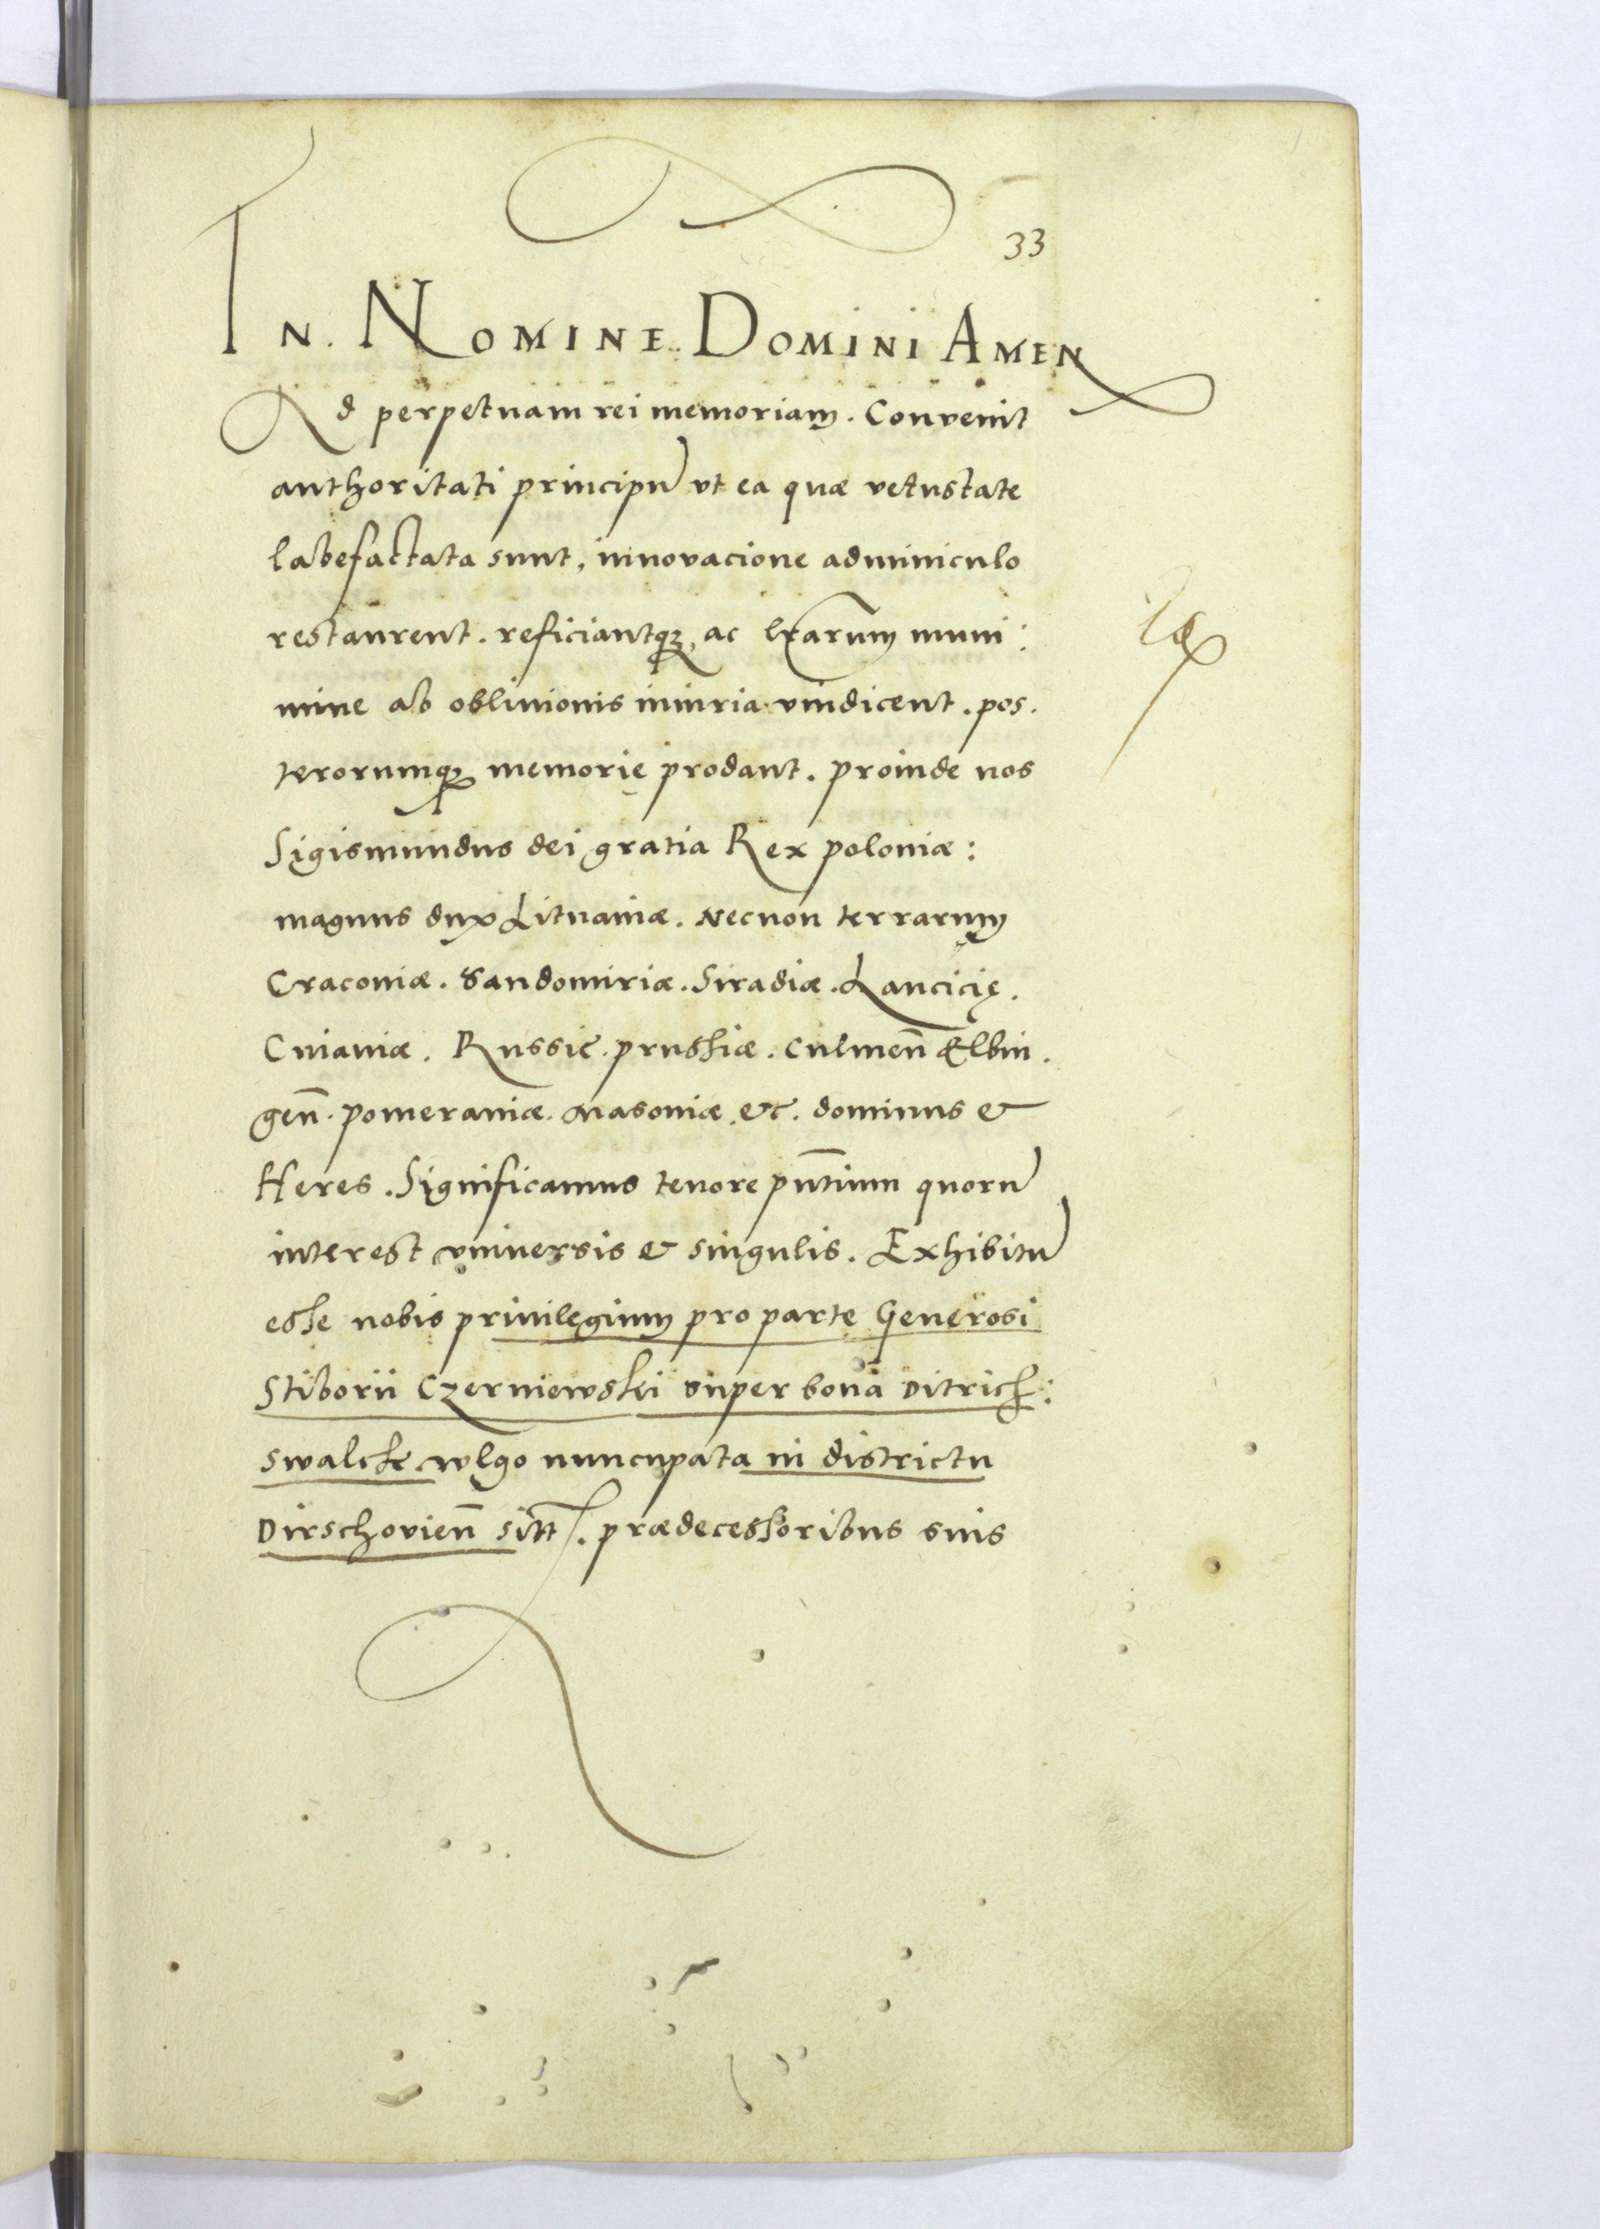 33
In. Nomine. Domini Amen
Ad perpetuam rei memoriam. Convenit
authoritati principũ vt ea quæ vetustate
labefactata sunt, innovacione adminiculo
restaurent. reficiantqꝫ, ac lrarum muni:
mine ab obliuionis iniuria vindicent. pos.
terorumqꝫ memorię prodant. proinde nos
Sigismundus dei gratia Rex poloniæ:
magnus dux Lituaniæ. Necnon terrarum
Cracoviæ. Sandomiriæ. Siradiæ. Lancicię.
Cuiaviæ. Russie. prussiæ. Culmeñ Elbin.
geñ. pomeraniæ. Masoviæ. etc. dominus &
Heres. Significamus tenore pñtium quorũ
interest vniuersis & singulis. Exhibitũ
esse nobis priuilegium pro parte Generosi
Stiborii Czerniewski super bona Ditrich:
swalcke wlgo nuncupata in districtu
Dirschovieñ sitt. prædecessoribus suis